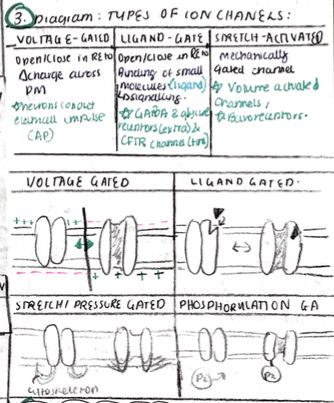 3. Diagram: TYPES OF ION CHANELS:
VOLTAGE-GATED
Open/close in RE to
Δcharge across
PM
☆neurons conduct
electrical impulse
(AP)
LIGAND-GATE
Open/close in RE to
Binding of small
molecules (ligand)
signalling.
☆ GABA & glycine
receptors (extra) &
CFTR channel
STRETCH-ACTIVATED
mechanically
Gated channel
☆ Volume activated
Channels,
☆ Baroreceptors.
VOLTAGE GATED
LIGAND GATED.
STRETCH/PRESSURE GATED
cytoskeleton
PHOSPHORYLATION GA
Pi
Pi